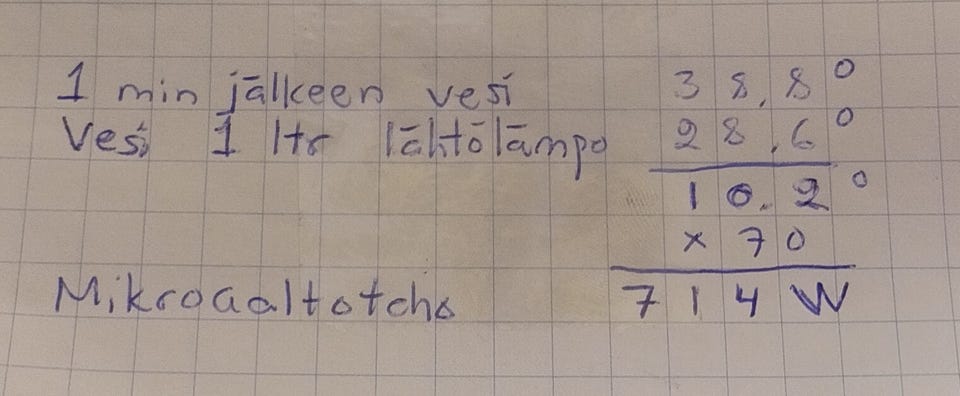 1 min jälkeen vesi 38,8°
Vesi 1 ltr lähtölämpo 28,6°
10.2°
x 70
Mikroaaltoteho 714 W